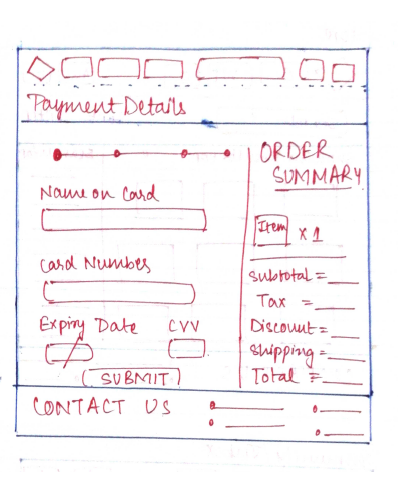 Payment Details
Name on Card
Card Number
Expiry Date CVV
/
SUBMIT
ORDER
SUMMARY
Item x 1
Subtotal =
Tax =
Discount =
Shipping =
Total =
CONTACT US